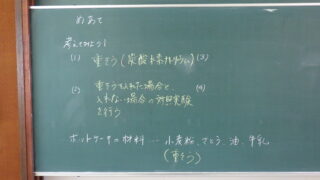 めあて
考えてみよう!
(1) 重そう(炭酸水素ナトリウム) (3)
(2) 重そうを入れた場合と (4)
入れない場合の対照実験
を行う
ホットケーキの材料…小麦粉、さとう、油、牛乳
(重そう)